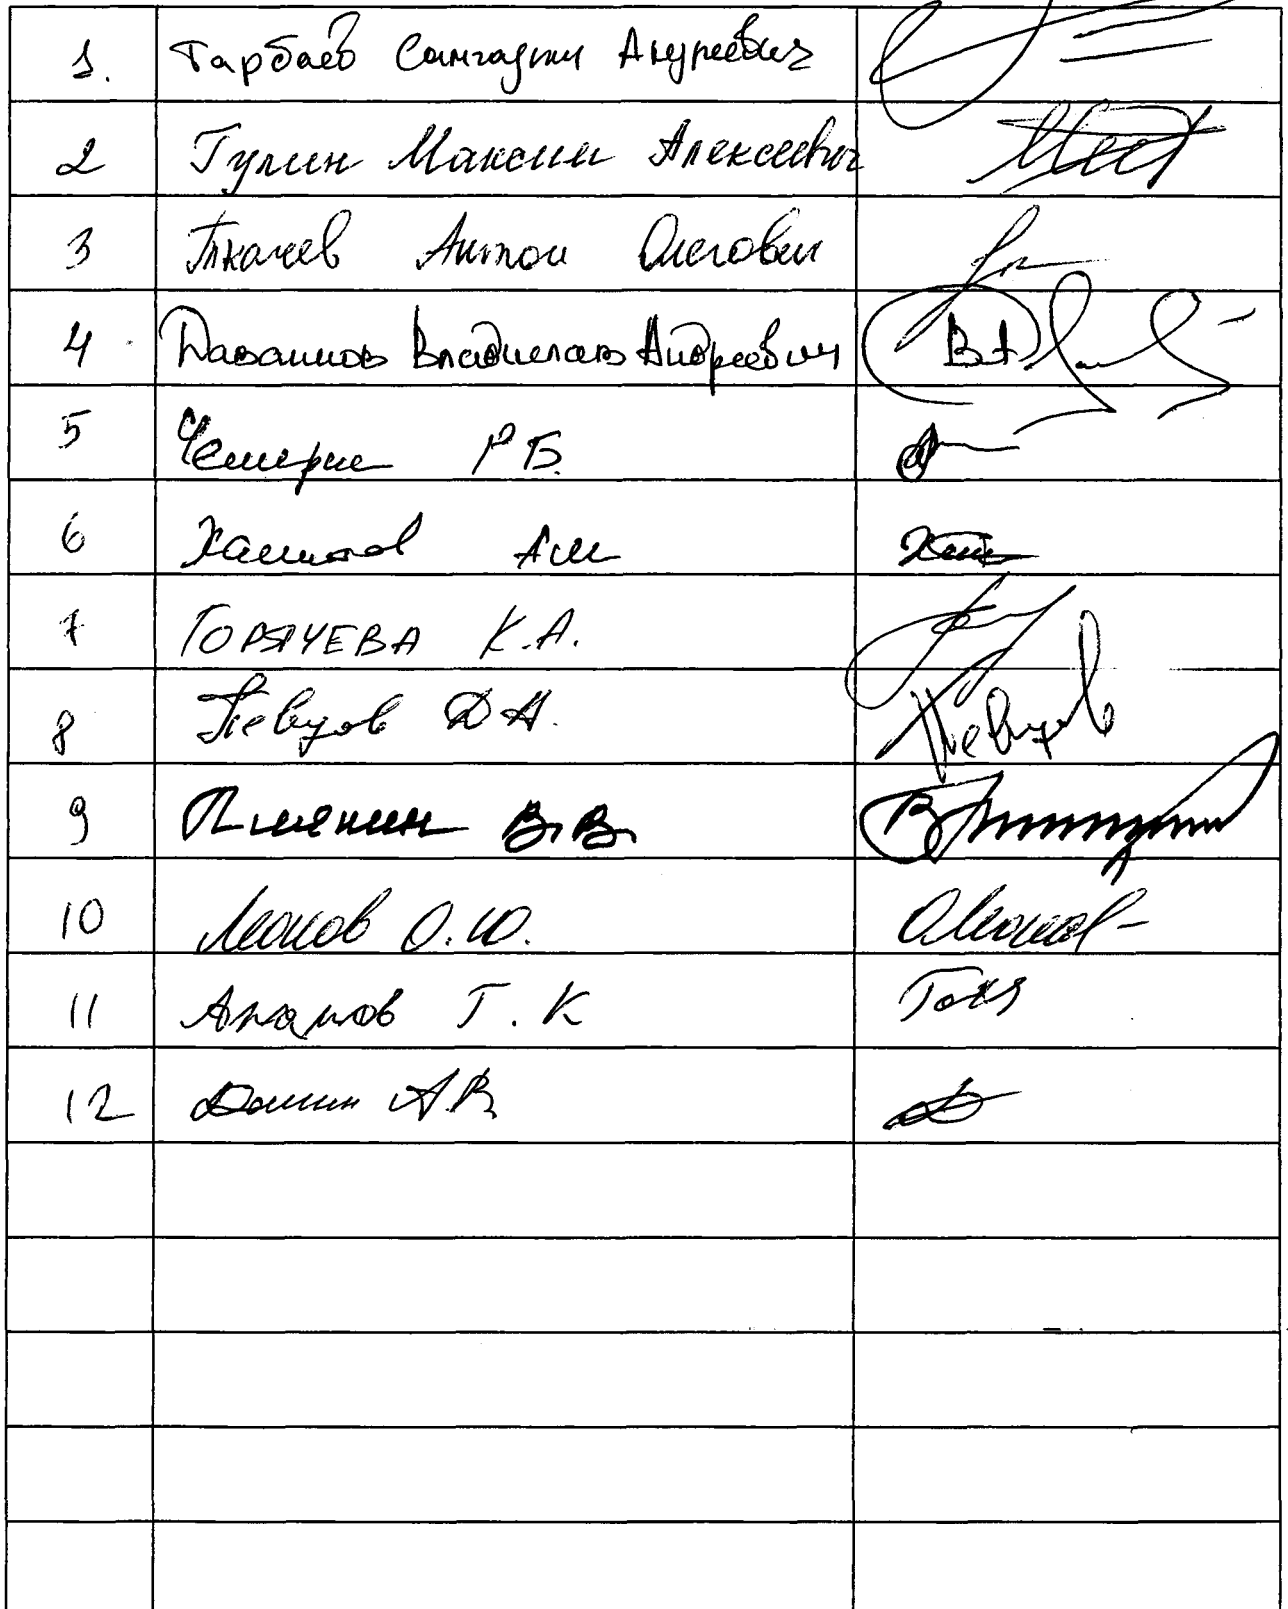 1. Тарбаев Сангаджи Андреевич
2 Гулин Максим Алексеевич
3 Ткачев Антон Олегович
4 Даванков Владислав Андреевич В.А.
5 Чемерис Р Б.
6 Хамитов А.М
7 ГОРЯЧЕВА К.А.
8 Певцов Д А. Певцов
9 Плякин В.В.
10 Леонов О.Ю. ОЛеонов
11 Арапов Г. К
12 Демин А.В.